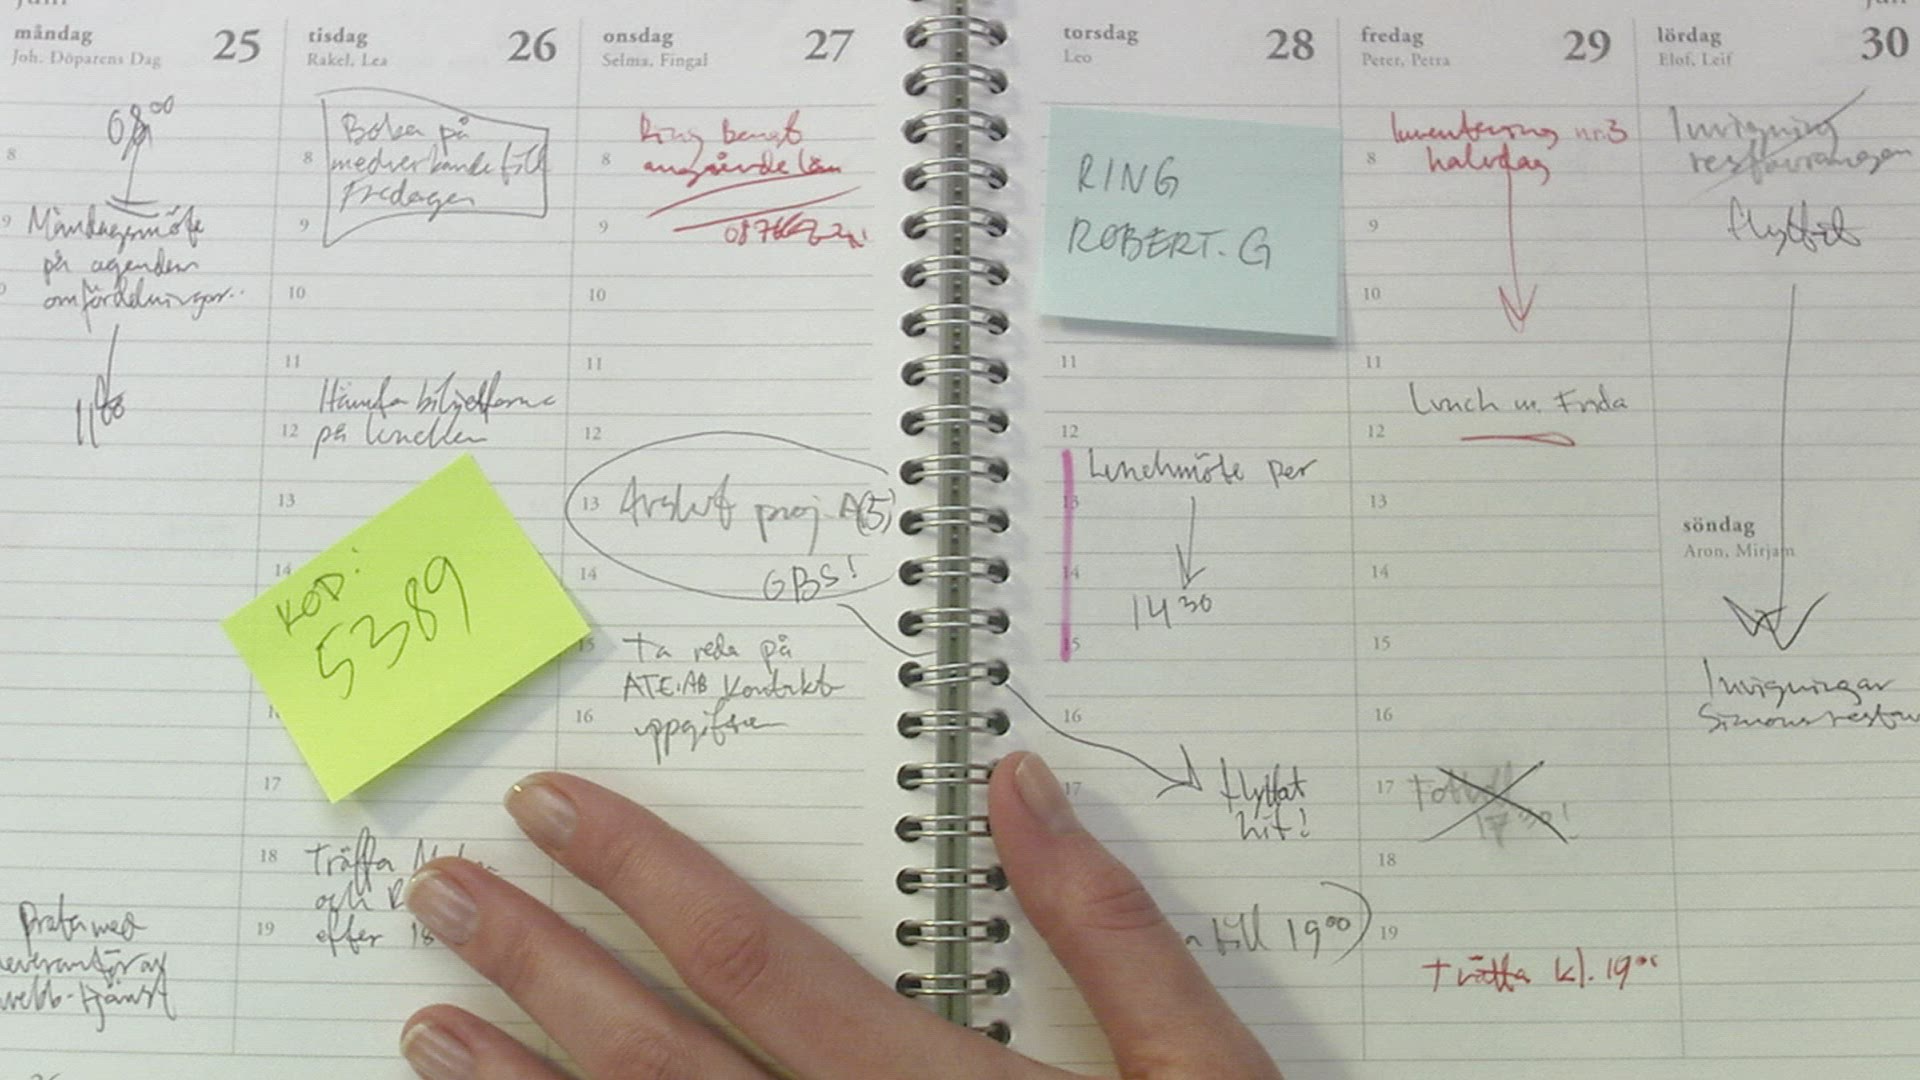 måndag 25
Joh. Döparens Dag
08 00
8
9
Måndagsmöte
på agendan
omfördelningar..
11 00
Prata med
leverantör av
webb-tjänst
tisdag 26
Rakel, Lea
Boka på
8
medverkande till
Fredagen
9
10
11
Hämta biljetterna
12
på lunchen
13
14
KOD:
5389
17
18
Träffa
och R
19
efter 18
onsdag 27
Selma, Fingal
Ring bengt
8
angående lån
9
10
11
12
13
Avslut proj. A(5)
14
GBS!
15
Ta reda på
ATE.AB Kontakt
16
uppgifter
torsdag 28
Leo
RING
ROBERT. G
11
12
Lunchmöte per
13
14
14 30
15
16
17
flyttat
hit!
till 19 00)
fredag 29
Peter, Petra
Inventering nr. 3
8
halvdag
9
10
11
Lunch m. Frida
12
13
14
15
16
17
17 30!
18
19
Träffa kl. 19 00
juni
lördag 30
Elof, Leif
Invigning
restaurangen
flyttat
söndag
Aron, Mirjam
Invigningar
Simons restau